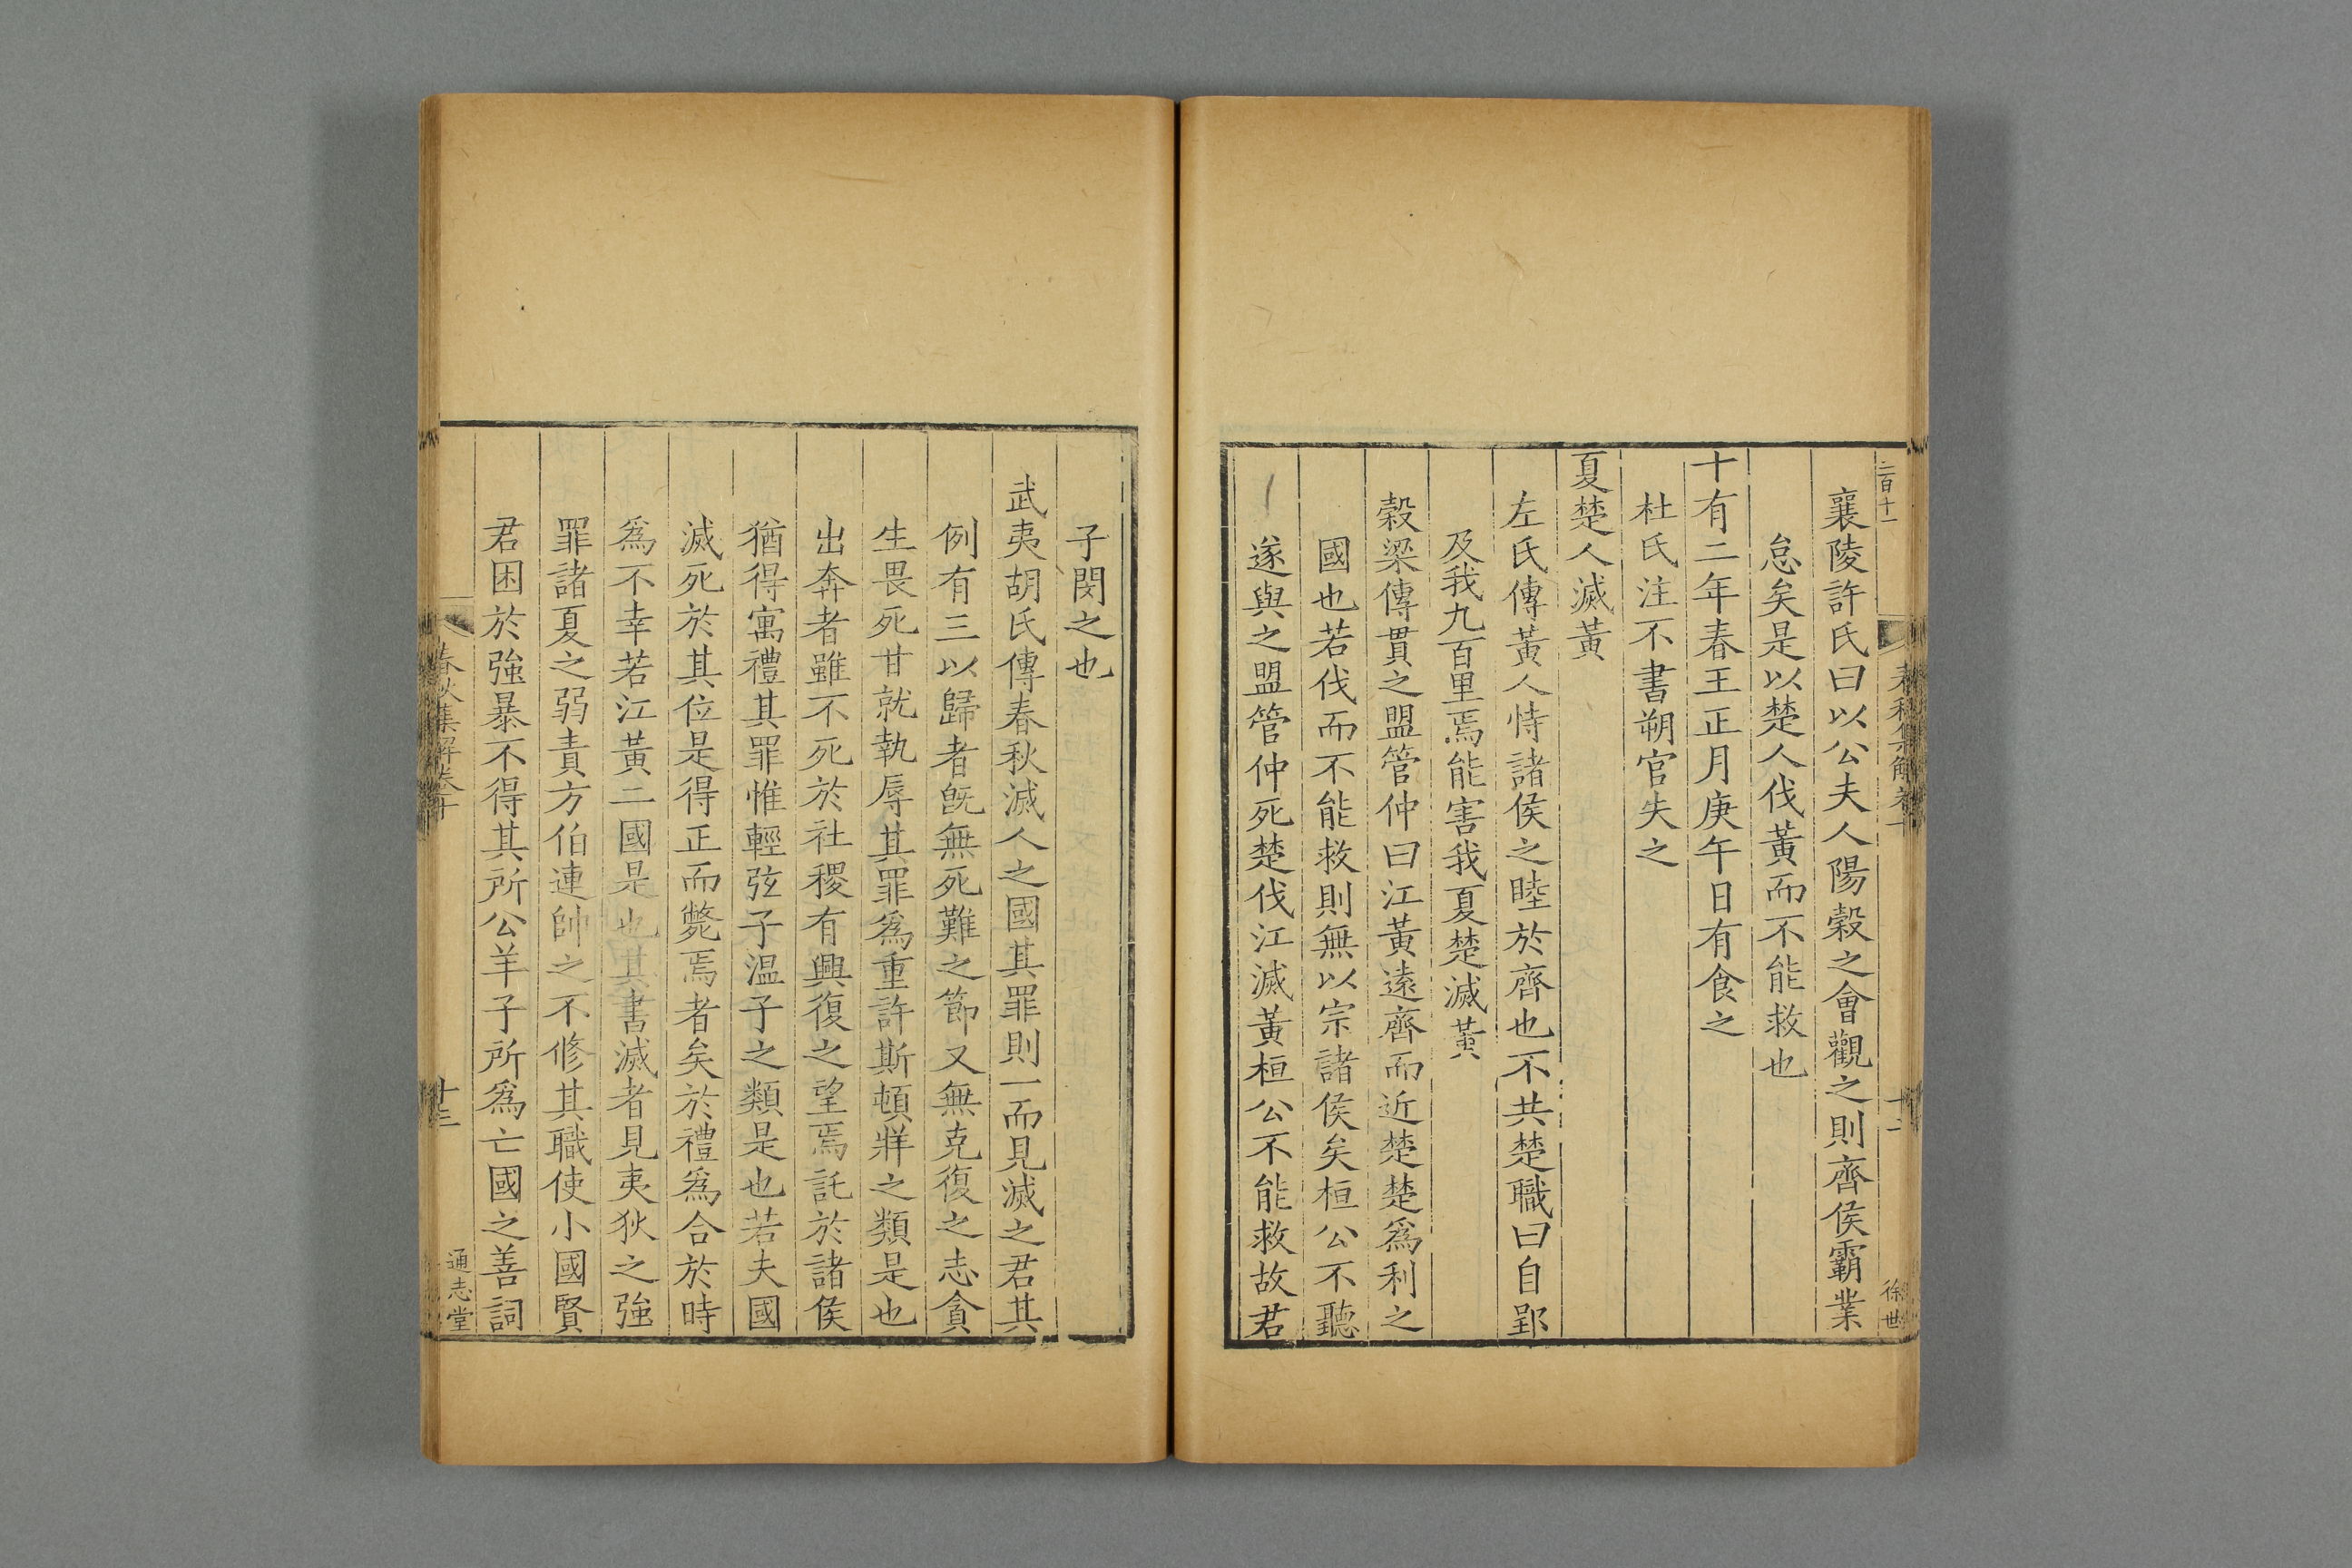 二百十一
徐世
襄陵許氏曰以公夫人陽穀之會觀之則齊侯霸業
怠矣是以楚人伐黃而不能救也
十有二年春王正月庚午日有食之
杜氏注不書朔官失之
夏楚人滅黃
左氏傳黃人恃諸侯之睦於齊也不共楚職曰自郢
及我九百里焉能害我夏楚滅黃
穀梁傳貫之盟管仲曰江黃遠齊而近楚楚爲利之
國也若伐而不能救則無以宗諸侯矣桓公不聽
遂與之盟管仲死楚伐江滅黃桓公不能救故君
子閔之也
武夷胡氏傳春秋滅人之國其罪則一而見滅之君其
例有三以歸者旣無死難之節又無克復之志貪
生畏死甘就執辱其罪爲重許斯頓牂之類是也
出奔者雖不死於社稷有興復之望焉託於諸侯
猶得寓禮其罪惟輕弦子溫子之類是也若夫國
滅死於其位是得正而斃焉者矣於禮爲合於時
爲不幸若江黃二國是也其書滅者見夷狄之強
罪諸夏之弱責方伯連帥之不修其職使小國賢
君困於強暴不得其所公羊子所爲亡國之善詞
春秋集解卷十
十三
通志堂